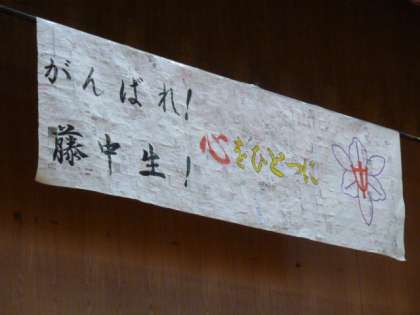 がんばれ!
藤中生!
心をひとつに
中